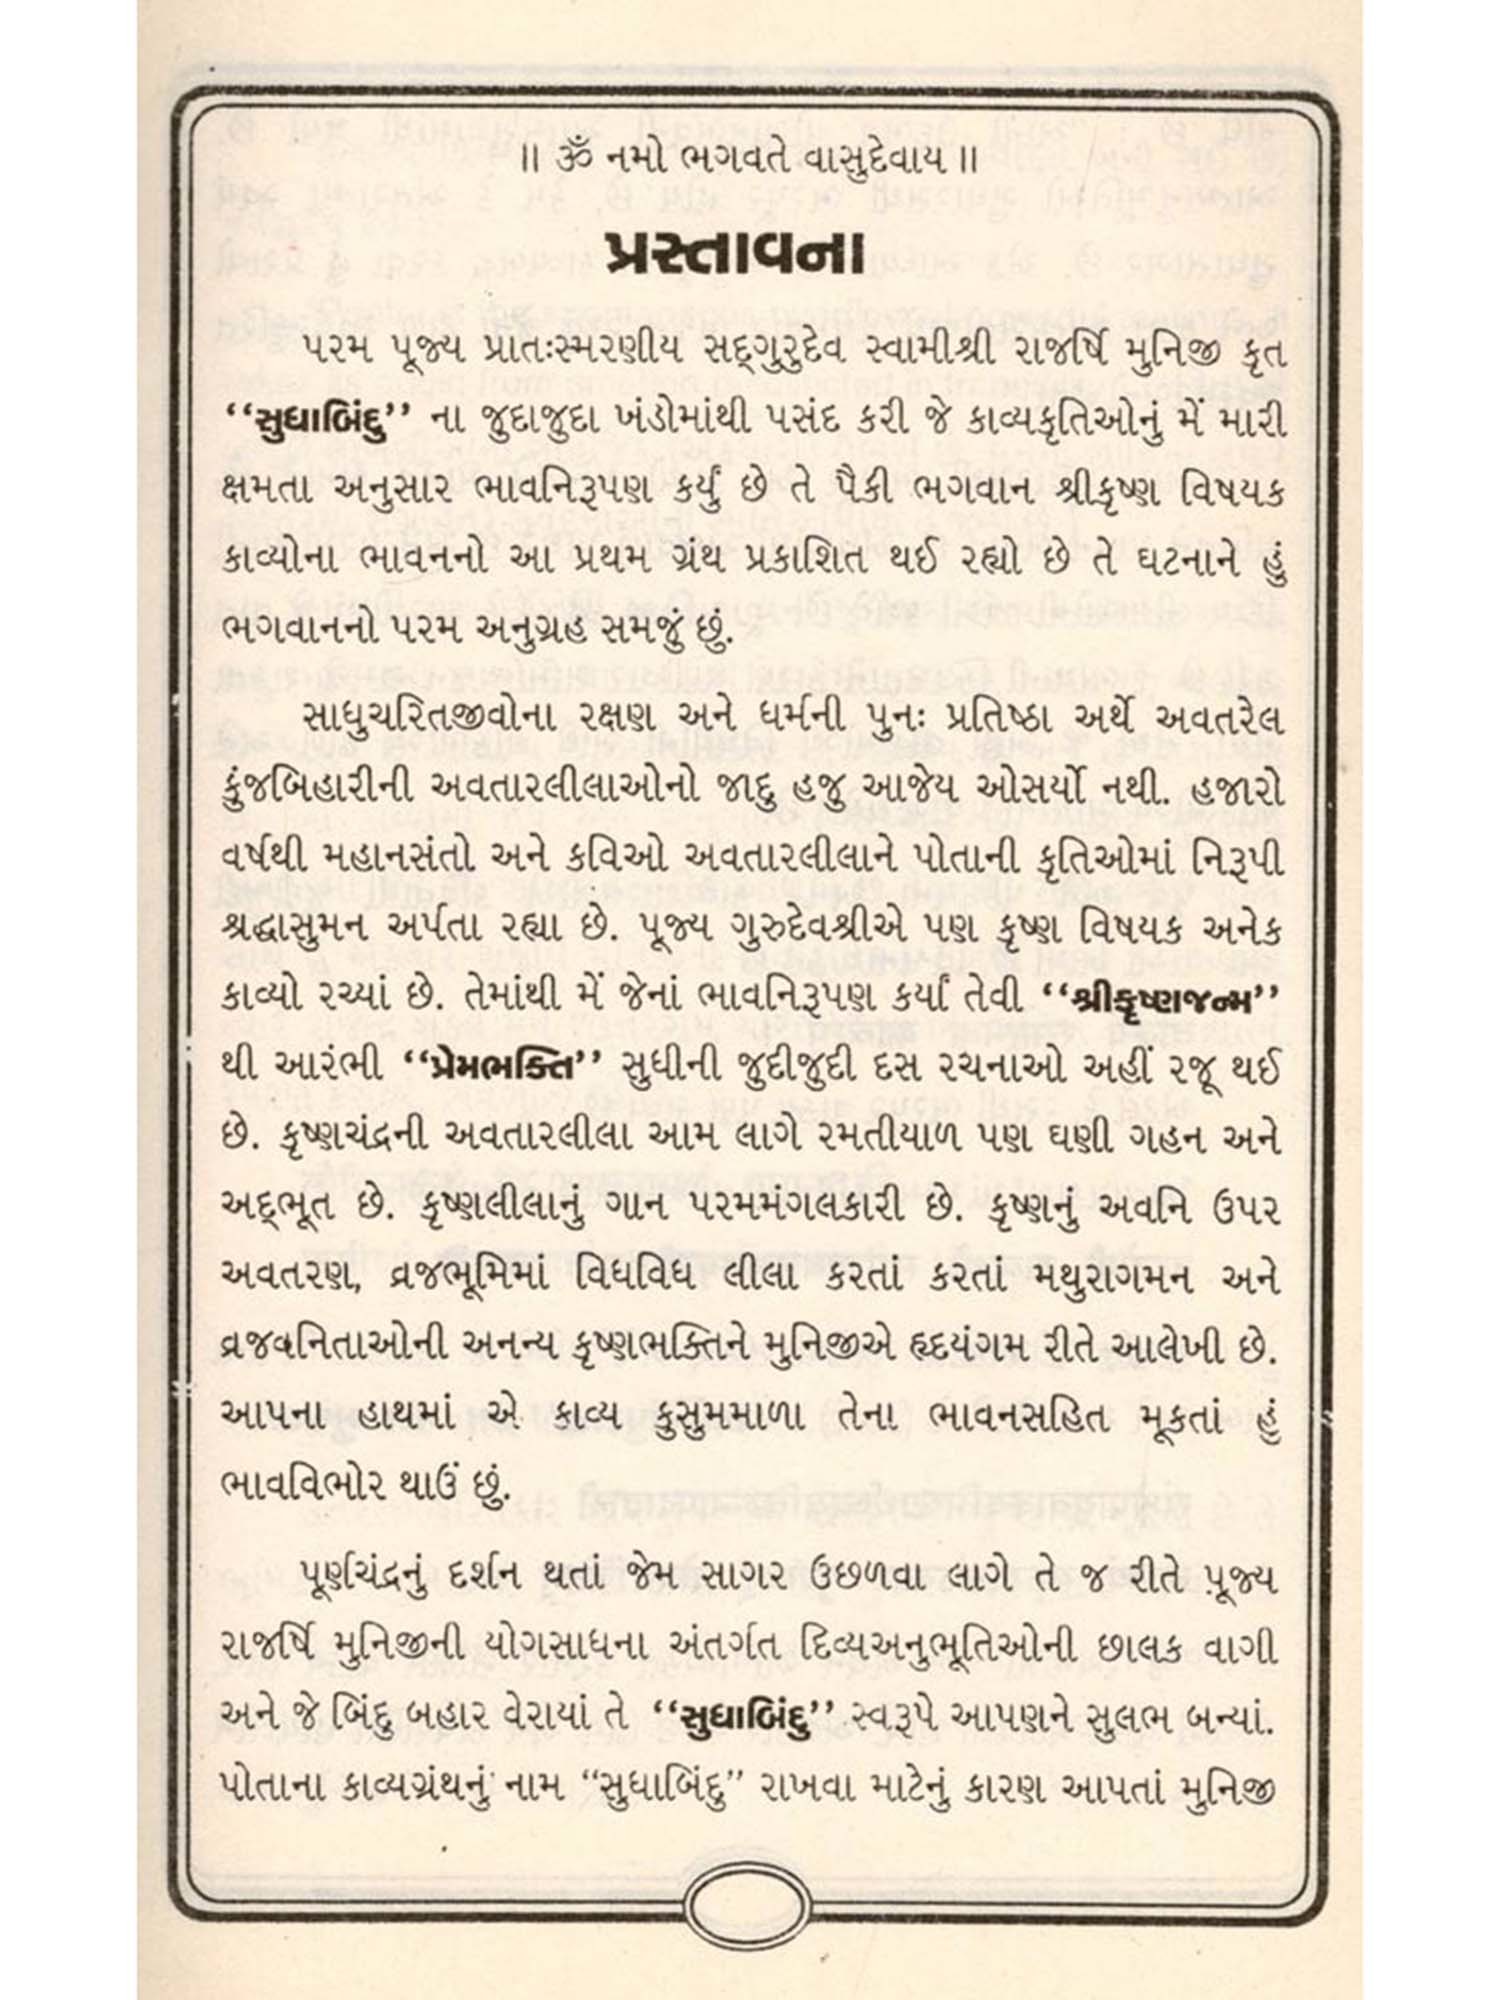 ॥ ૐ નમો ભગવતે વાસુદેવાય ॥
પ્રસ્તાવના
પરમ પૂજ્ય પ્રાતઃસ્મરણીય સદ્‌ગુરુદેવ સ્વામીશ્રી રાજર્ષિ મુનિજી કૃત
‘‘સુધાબિંદુ’’ ના જુદાજુદા ખંડોમાંથી પસંદ કરી જે કાવ્યકૃતિઓનું મેં મારી
ક્ષમતા અનુસાર ભાવનિરૂપણ કર્યું છે તે પૈકી ભગવાન શ્રીકૃષ્ણ વિષયક
કાવ્યોના ભાવનનો આ પ્રથમ ગ્રંથ પ્રકાશિત થઈ રહ્યો છે તે ઘટનાને હું
ભગવાનનો પરમ અનુગ્રહ સમજું છું.
સાધુચરિતજીવોના રક્ષણ અને ધર્મની પુનઃ પ્રતિષ્ઠા અર્થે અવતરેલ
કુંજબિહારીની અવતારલીલાઓનો જાદુ હજુ આજેય ઓસર્યો નથી. હજારો
વર્ષથી મહાનસંતો અને કવિઓ અવતારલીલાને પોતાની કૃતિઓમાં નિરૂપી
શ્રદ્ધાસુમન અર્પતા રહ્યા છે. પૂજ્ય ગુરુદેવશ્રીએ પણ કૃષ્ણ વિષયક અનેક
કાવ્યો રચ્યાં છે. તેમાંથી મેં જેનાં ભાવનિરૂપણ કર્યાં તેવી ‘‘શ્રીકૃષ્ણજન્મ’’
થી આરંભી ‘‘પ્રેમભક્તિ’’ સુધીની જુદીજુદી દસ રચનાઓ અહીં રજૂ થઈ
છે. કૃષ્ણચંદ્રની અવતારલીલા આમ લાગે રમતીયાળ પણ ઘણી ગહન અને
અદ્‌ભૂત છે. કૃષ્ણલીલાનું ગાન પરમમંગલકારી છે. કૃષ્ણનું અવનિ ઉપર
અવતરણ, વ્રજભૂમિમાં વિધવિધ લીલા કરતાં કરતાં મથુરાગમન અને
વ્રજવનિતાઓની અનન્ય કૃષ્ણભક્તિને મુનિજીએ હૃદયંગમ રીતે આલેખી છે.
આપના હાથમાં એ કાવ્ય કુસુમમાળા તેના ભાવનસહિત મૂકતાં હું
ભાવવિભોર થાઉં છું.
પૂર્ણચંદ્રનું દર્શન થતાં જેમ સાગર ઉછળવા લાગે તે જ રીતે પૂજ્ય
રાજર્ષિ મુનિજીની યોગસાધના અંતર્ગત દિવ્યઅનુભૂતિઓની છાલક વાગી
અને જે બિંદુ બહાર વેરાયાં તે ‘‘સુધાબિંદુ’’ સ્વરૂપે આપણને સુલભ બન્યાં.
પોતાના કાવ્યગ્રંથનું નામ “સુધાબિંદુ” રાખવા માટેનું કારણ આપતાં મુનિજી